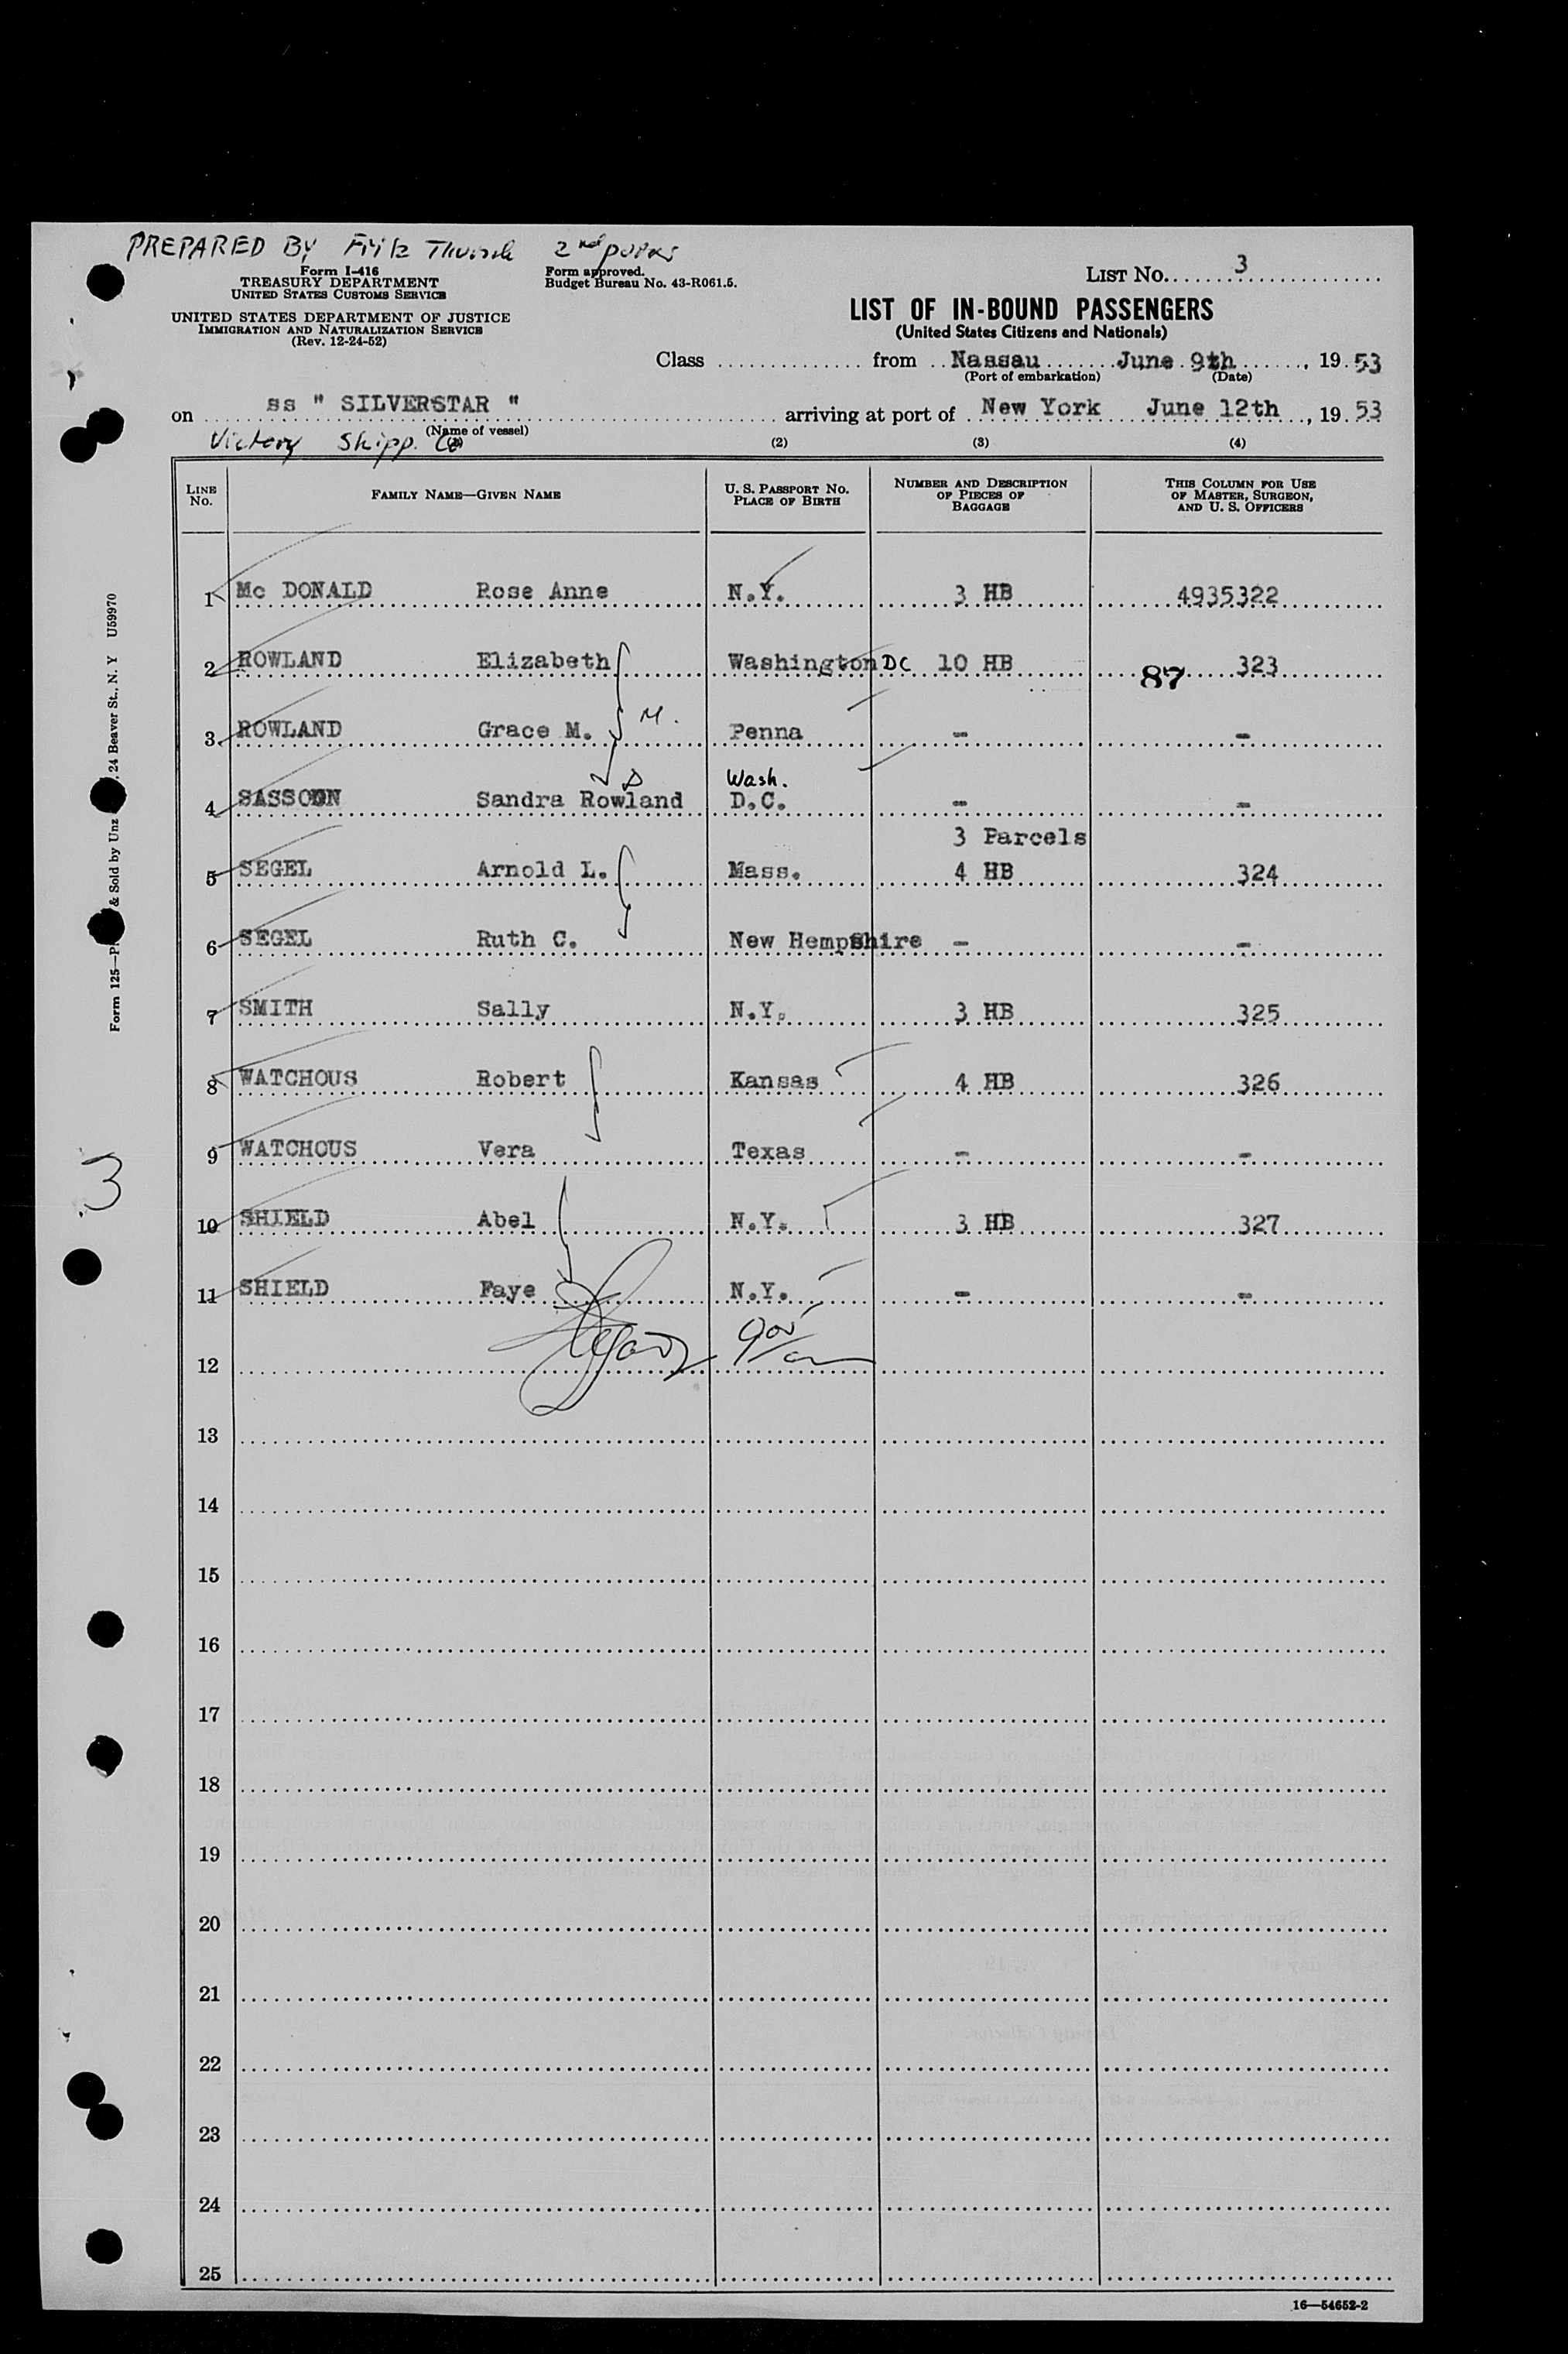 PREPARED BY Fritz 2nd purser
Form I-416
TREASURY DEPARTMENT
UNITED STATES CUSTOMS SERVICE
UNITED STATES DEPARTMENT OF JUSTICE
IMMIGRATION AND NATURALIZATION SERVICE
(Rev. 12-24-52)
Form approved.
Budget Bureau No. 43-R061.5.
LIST No. 3
LIST OF IN-BOUND PASSENGERS
(United States Citizens and Nationals)
Class from Nassau June 9th, 19 53
(Port of embarkation) (Date)
on ss " SILVERSTAR " arriving at port of New York June 12th, 19 53
(Name of vessel)
Victory Shipp. Co
(2) (3) (4)
LINE No. FAMILY NAME—GIVEN NAME U. S. PASSPORT No. PLACE OF BIRTH NUMBER AND DESCRIPTION OF PIECES OF BAGGAGE THIS COLUMN FOR USE OF MASTER, SURGEON, AND U. S. OFFICERS
1 Mc DONALD Rose Anne N.Y. 3 HB 4935322
2 ROWLAND Elizabeth Washington DC 10 HB 87 323
3 ROWLAND Grace M. M. Penna - -
Wash.
4 SASSOON Sandra Rowland D.C. - -
3 Parcels
5 SEGEL Arnold L. Mass. 4 HB 324
6 SEGEL Ruth C. New Hempshire - -
7 SMITH Sally N.Y. 3 HB 325
8 WATCHOUS Robert Kansas 4 HB 326
9 WATCHOUS Vera Texas - -
10 SHIELD Abel N.Y. 3 HB 327
11 SHIELD Faye N.Y. - -
12
13
14
15
16
17
18
19
20
21
22
23
24
25
16—54652-2
Form 125— & Sold by Unz , 24 Beaver St., N. Y U59970
3